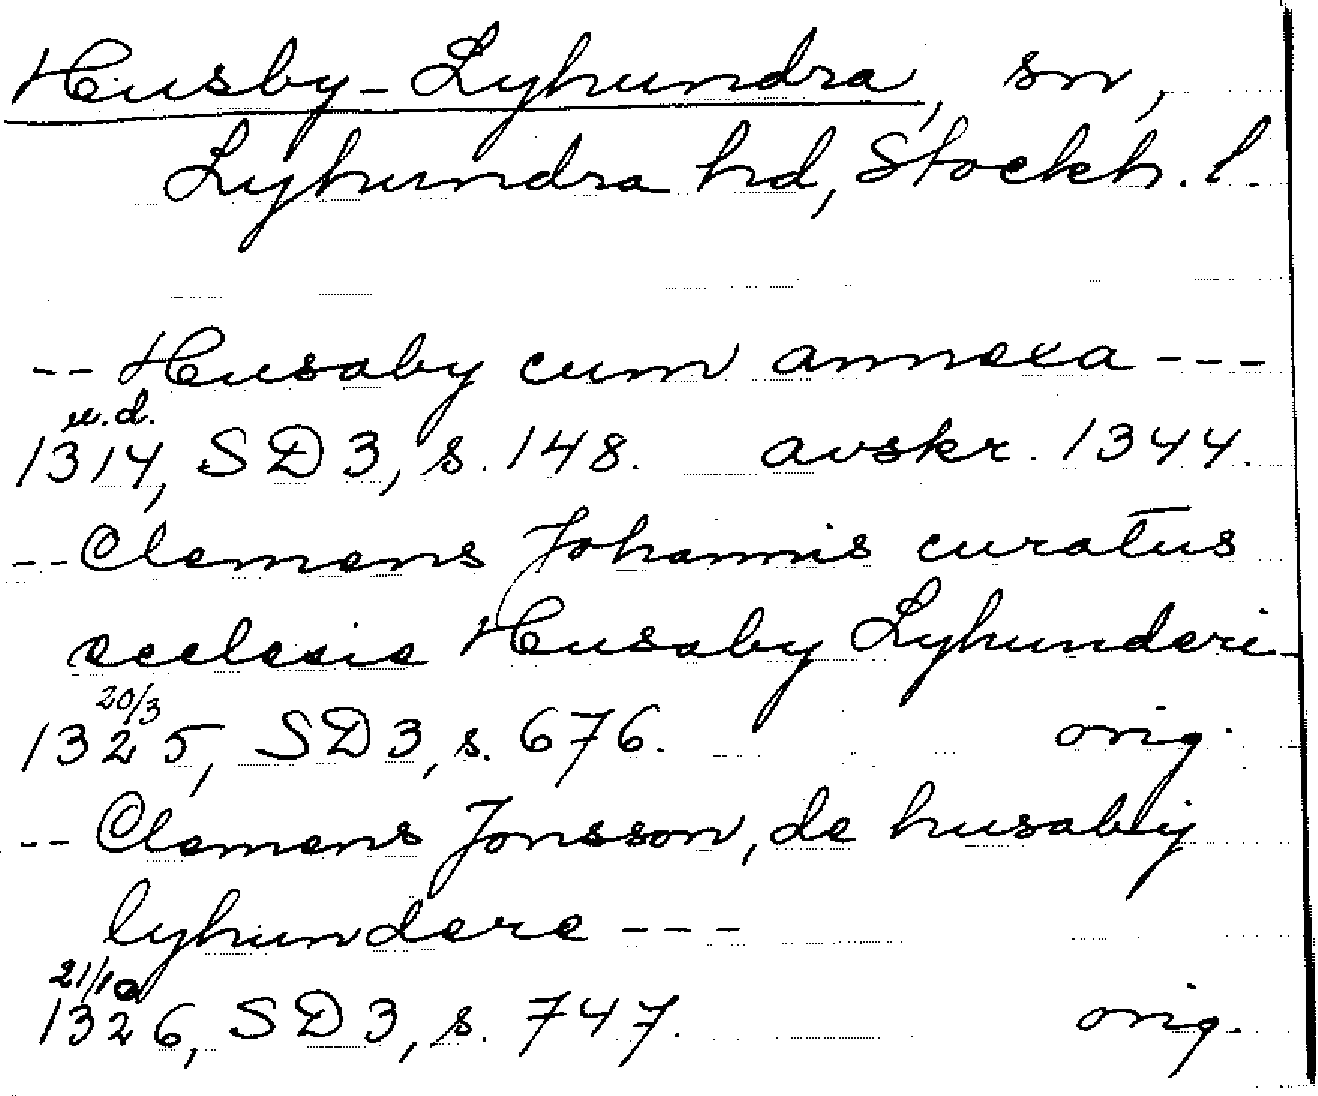 Husby-Lyhundra, sn,
Lyhundra hd, Stockh. l.
-- Husaby cum annexa ---
u.d.
1314, SD 3, s. 148. avskr. 1344.
-- Clemens Johannis curatus
ecclesie Husaby Lyhunderi-
20/3
1325, SD 3, s. 676. orig.
-- Clemens Jonsson, de husabiy
lyhundere ---
21/10
1326, SD 3, s. 747. orig.